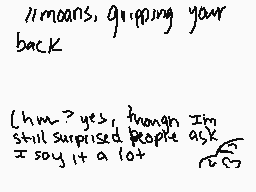 //moans, gripping your
back
(hm? yes, though Im
still surprised people ask
I say it a lot